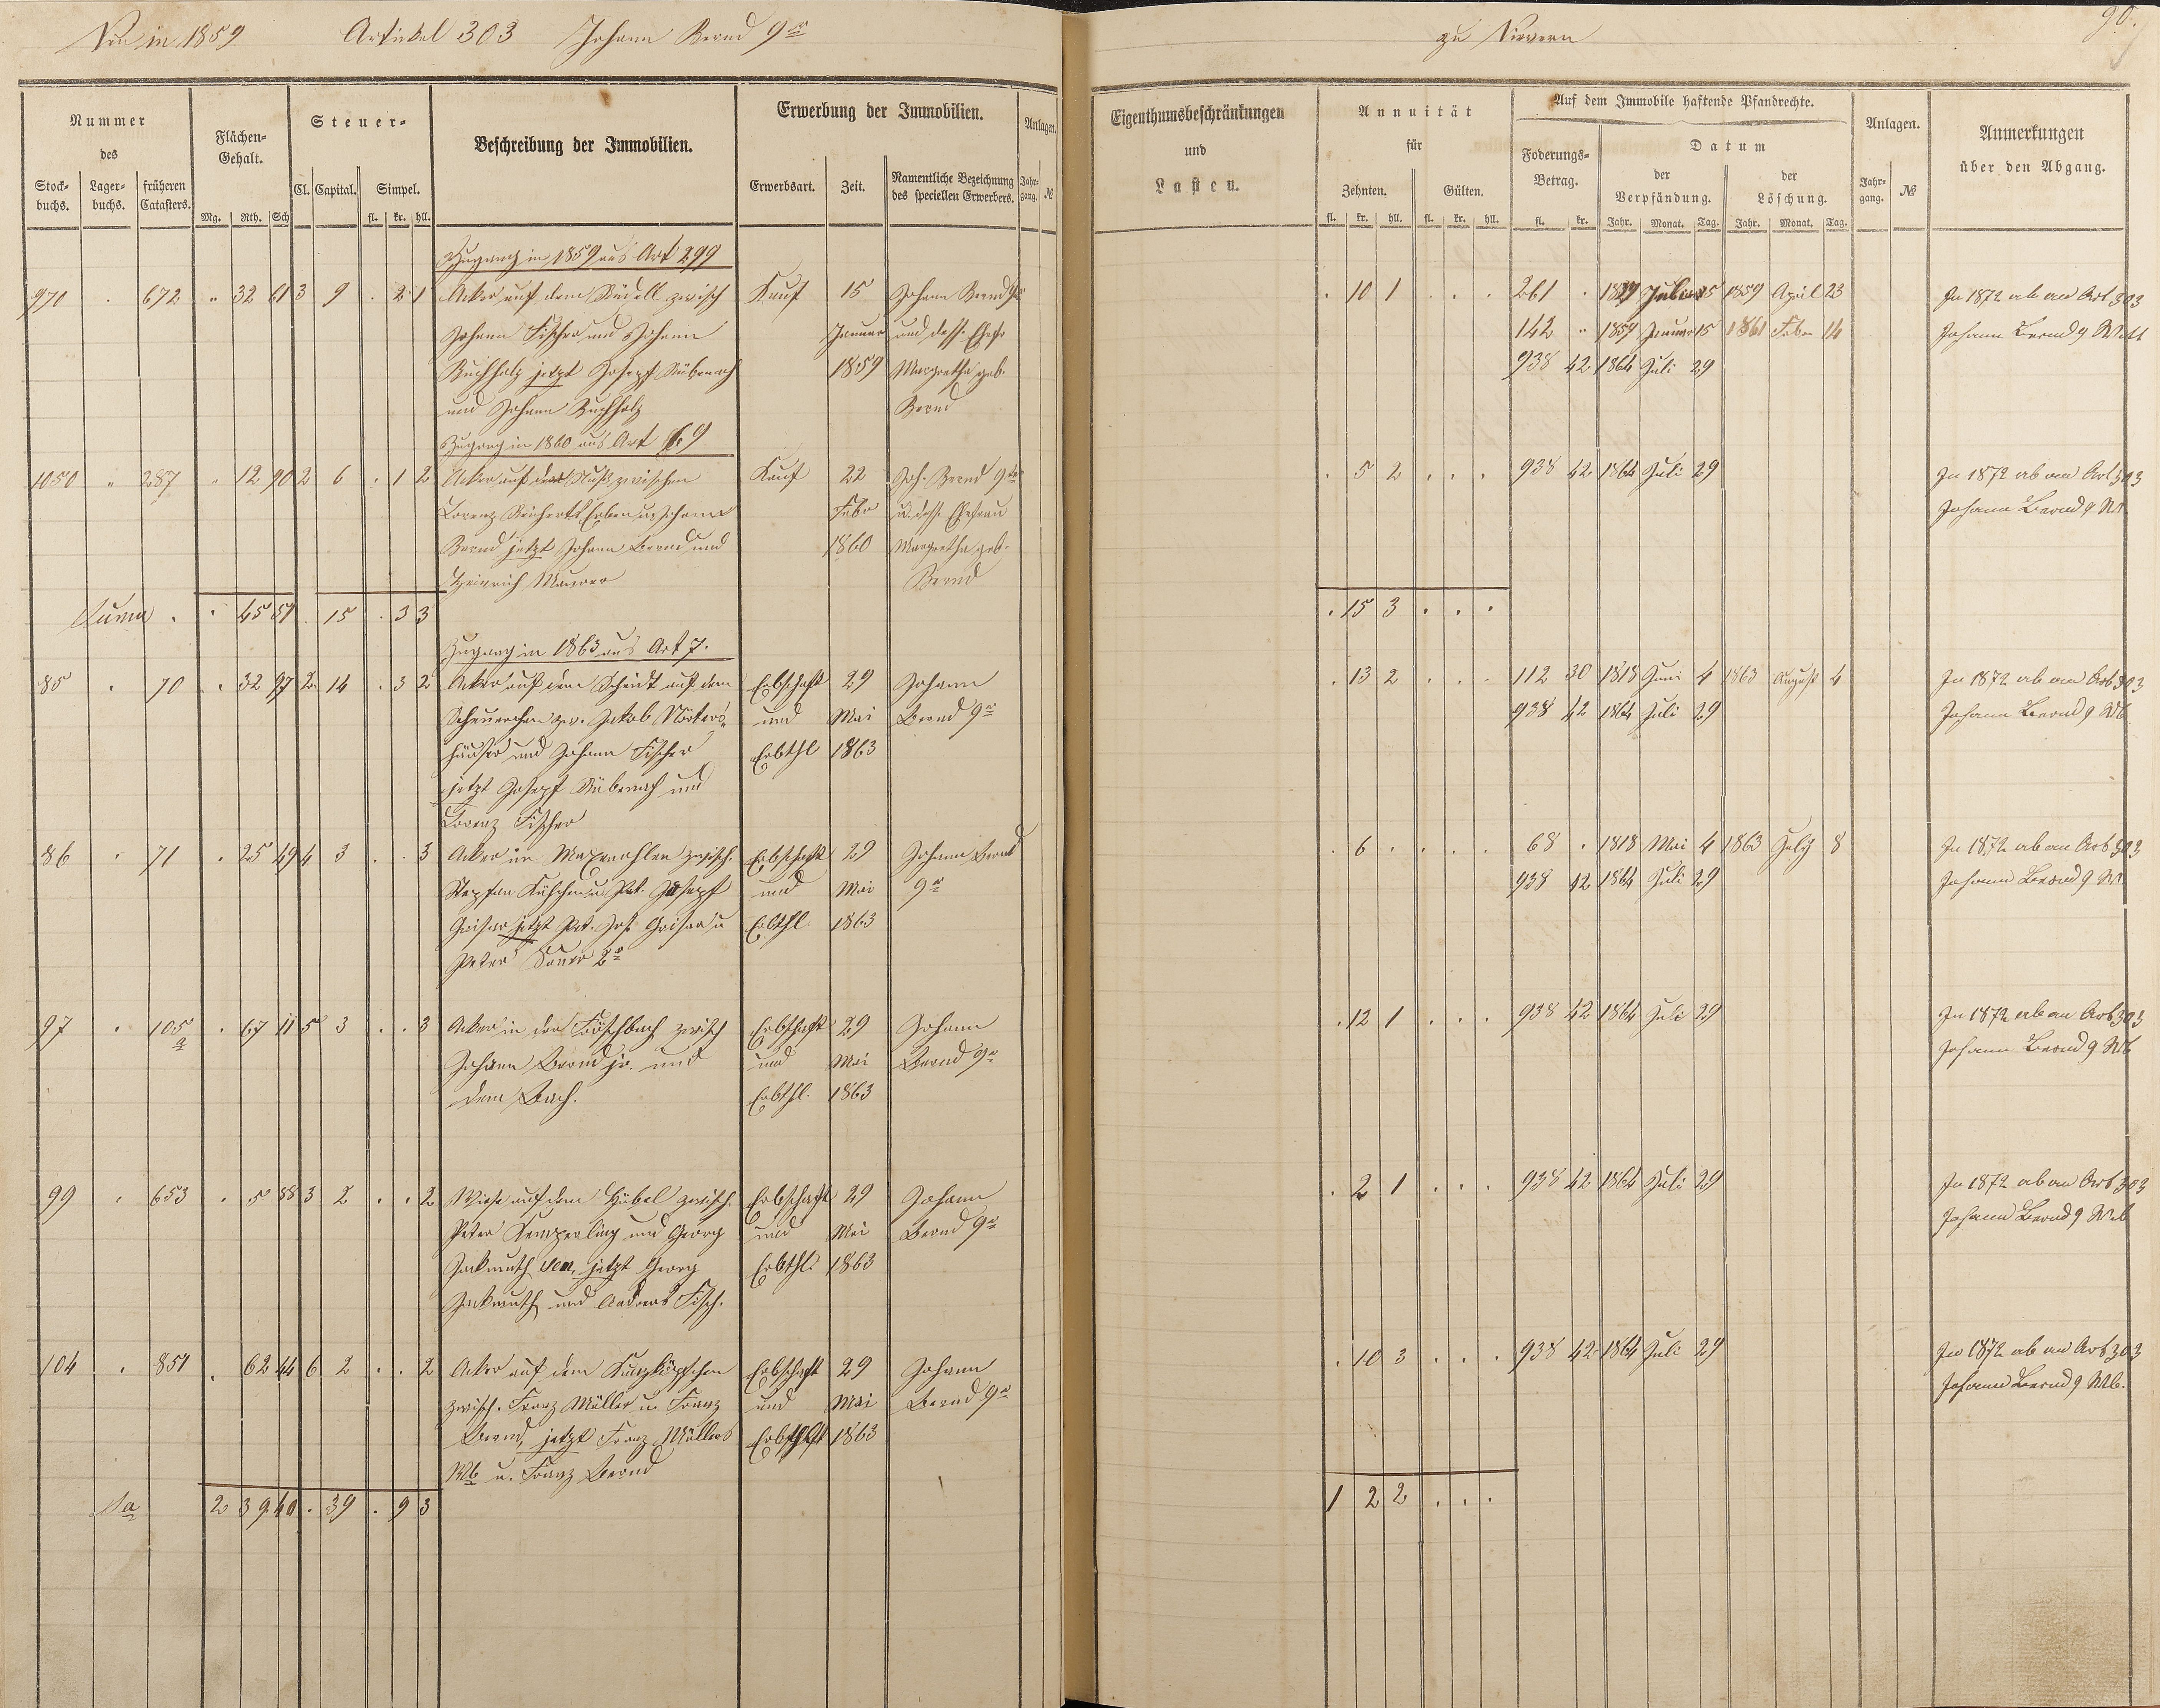 Neu in 1859 Artikel 303 Johann Bernd 9r
zu Nievern 90.
Nummer des
Stock-buchs. Lager-buchs. früheren Catasters.
Flächen-Gehalt.
Mg. Rth. Sch
Steuer-
Cl. Capital. Simpel.
fl. kr. hll.
Beschreibung der Immobilien.
Erwerbung der Immobilien.
Erwerbsart. Zeit. Namentliche Bezeichnung des speciellen Erwerbers.
Anlagen.
Jahr-gang. №
Eigenthumsbeschränkungen
und
Lasten.
Annuität
für
Zehnten. Gülten.
fl. kr. hll. fl. kr. hll.
Auf dem Immobile haftende Pfandrechte.
Foderungs-Betrag.
fl. kr.
Datum
der Verpfändung. der Löschung.
Jahr. Monat. Tag. Jahr. Monat. Tag.
Anlagen.
Jahr-gang. №
Anmerkungen
über den Abgang.
Zugang in 1859 aus Art 299
971 . 672 " 32 61 3 9 . 2 1 Acker auf dem zwisch Kauf 15 Johann Bernd 9r . 10 1 . . . 261 . 15 1859 April 23 In 1872 ab an Art 303
Johann Fischer und Johann Januar und dess. Ehefr 142 " 1859 Januar 15 1861 Febr 14 Johann Bernd 9 Witt
Buchholz jetzt Josepf Rübenach 1859 Margretha geb. 938 42 1864 Juli 29
und Johann Buchholz Bernd
Zugang in 1860 aus Art 69
1050 " 287 " 12 90 2 6 . 1 2 Acker auf zwischen Kauf 22 Joh. Bernd 9te . 5 2 . . . 938 42 1864 Juli 29 In 1872 ab an Art 303
Lorenz Erben u Johann Febr u. dess. Ehefrau Johann Bernd 9 W
Bernd jetzt Johann Bernd und 1860 Margretha geb.
Heinrich Maurer Bernd
Suma . . 45 51 . 15 . 3 3 . 15 3 . . .
Zugang in 1863 aus Art 7.
85 . 70 . 32 97 2 14 . 3 2 Acker auf dem Scheidt auf dem Erbschaft 29 Johann . 13 2 . . . 112 30 1818 Juni 4 1863 August 4 In 1872 ab an Art 303
Scheuerchen zw. Jakob Nörters- und Mai Bernd 9r 938 42 1864 Juli 29 Johann Bernd 9 Wb
häuser und Johann Fischer Erbthl 1863
jetzt Josepf Rübenach und
Lorenz Fischer
86 . 71 . 25 49 4 3 . . 3 Acker in zwisch. Erbschaft 29 Johann Bernd . 6 . . . . 68 . 1818 Mai 4 1863 July 8 In 1872 ab an Art 303
Stephan u Pet. Josepf und Mai 9r 938 42 1864 Juli 29 Johann Bernd 9 W
Geiser jetzt Pet. Jos. Geiser u Erbthl 1863
Peter Sauer 2r
97 . 105 a . 67 11 5 3 . . 3 Acker in der Fröschbach zwisch Erbschaft 29 Johann . 12 1 . . . 938 42 1864 Juli 29 In 1872 ab an Art 303
Johann Bernd jr. und und Mai Bernd 9r Johann Bernd 9 Wb
dem Bach. Erbthl. 1863
99 . 653 . 5 88 3 2 . . 2 Wiese auf dem Hübel zwisch. Erbschaft 29 Johann . 2 1 . . . 938 42 1864 Juli 29 In 1872 ab an Art 303
Peter Kemperling und Georg und Mai Bernd 9r Johann Bernd 9 Wb
Jackmuth sen. jetzt Georg Erbthl. 1863
Jackmuth und Andreas Fisch.
104 . 851 . 62 44 6 2 . . 2 Acker auf dem Erbschaft 29 Johann . 10 3 . . . 938 42 1864 Juli 29 In 1872 ab an Art 303
zwisch. Franz Müller u. Franz und Mai Bernd 9r Johann Bernd 9 Wb.
Bernd, jetzt Franz Müllers 1863
Wb u. Franz Bernd
Sa 2 39 40 . 39 . 9 3 1 2 2 . . .